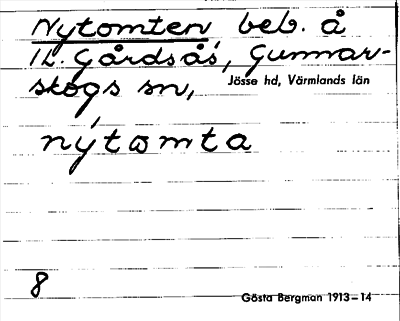 Nytomten, beb. å
N. Gårdsås, Gunnar-
skogs sn, Jösse hd, Värmlands län
nýtωmta
8
Gösta Bergman 1913–14